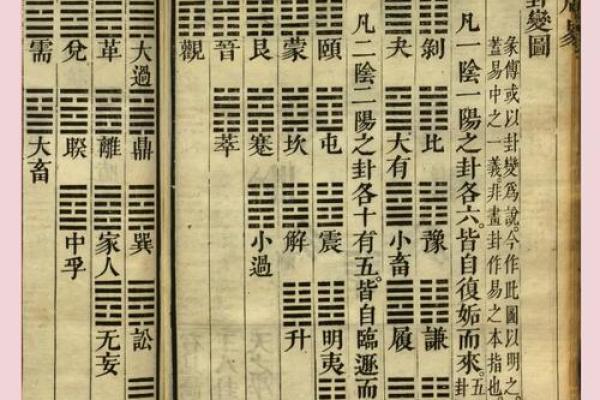 周易
卦變圖
彖傳或以卦變爲說。今作此圖以明之。
蓋易中之一義。非畫卦作易之本指也。
凡一陰一陽之卦各六。皆自復姤而來。五卦
剝 比 豫 謙
夬 大有 小畜 履
凡二陰二陽之卦各十有五。皆自臨遯而
頤 屯 震 明夷
蒙 坎 解 升
艮 蹇 小過
晉 萃
觀
大過 鼎 巽 訟
革 離 家人 无妄
兌 睽 中孚
需 大畜